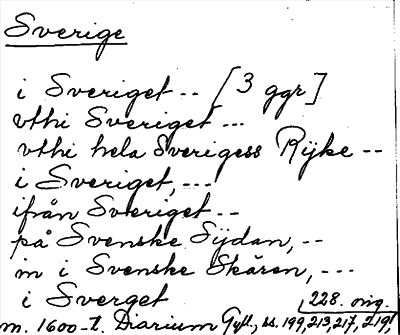 Sverige
i Sveriget -- [3 ggr]
vthi Sveriget ---
vthi hela Sverigess Rijke --
i Sveriget, ---
ifrån Sveriget --
på Svenske Sijdan, --
in i Svenske Skären, ---
i Sverget
228. orig.
m. 1600-t. Diarium Gyll., ss. 199, 213, 217, 219,